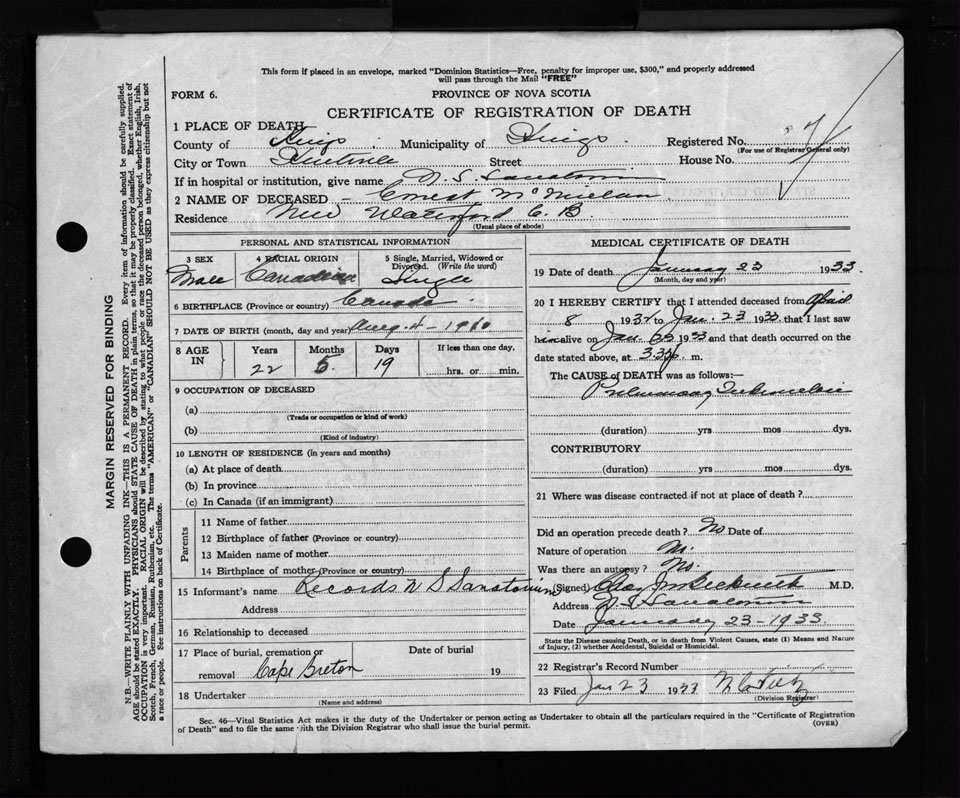 This form if placed in an envelope, marked "Dominion Statistics—Free, penalty for improper use, $300," and properly addressed
will pass through the Mail "FREE"
FORM 6.
PROVINCE OF NOVA SCOTIA
CERTIFICATE OF REGISTRATION OF DEATH
1 PLACE OF DEATH
County of Kings Municipality of Kings Registered No.
(For use of Registrar General only)
City or Town Kentville Street House No.
If in hospital or institution, give name N. S. Sanatorium
2 NAME OF DECEASED - Ernest
Residence New Waterford C. B.
(Usual place of abode)
PERSONAL AND STATISTICAL INFORMATION
3 SEX
Male
4 RACIAL ORIGIN
Canadian
5 Single, Married, Widowed or
Divorced. (Write the word)
Single
6 BIRTHPLACE (Province or country) Canada
7 DATE OF BIRTH (month, day and year) Aug. 4 - 1910
8 AGE IN Years Months Days If less than one day,
22 5 19 hrs. or min.
9 OCCUPATION OF DECEASED
(a)
(Trade or occupation or kind of work)
(b)
(Kind of industry)
10 LENGTH OF RESIDENCE (in years and months)
(a) At place of death
(b) In province
(c) In Canada (if an immigrant)
Parents
11 Name of father
12 Birthplace of father (Province or country)
13 Maiden name of mother
14 Birthplace of mother (Province or country)
15 Informant's name Records N S Sanatorium
Address
16 Relationship to deceased
17 Place of burial, cremation or
removal Cape Breton
Date of burial
19
18 Undertaker
(Name and address)
MEDICAL CERTIFICATE OF DEATH
19 Date of death January 23 1933
(Month, day and year)
20 I HEREBY CERTIFY that I attended deceased from April
8 1932 to Jan. 23 1933 that I last saw
him alive on Jan 23 1933 and that death occurred on the
date stated above, at m.
The CAUSE of DEATH was as follows:—
Pulmonary Tuberculosis
(duration) yrs mos dys.
CONTRIBUTORY
(duration) yrs. mos dys.
21 Where was disease contracted if not at place of death?
Did an operation precede death? No Date of
Nature of operation No.
Was there an autopsy? No.
(Signed) M.D.
Address N. S Sanatorium
Date January 23 - 1933
State the Disease causing Death, or in death from Violent Causes, state (1) Means and Nature
of Injury, (2) whether Accidental, Suicidal or Homicidal.
22 Registrar's Record Number
23 Filed Jan 23 1933
(Division Registrar)
Sec. 46—Vital Statistics Act makes it the duty of the Undertaker or person acting as Undertaker to obtain all the particulars required in the "Certificate of Registration
of Death" and to file the same with the Division Registrar who shall issue the burial permit.
(OVER)
MARGIN RESERVED FOR BINDING
N.B.—WRITE PLAINLY WITH UNFADING INK—THIS IS A PERMANENT RECORD. Every item of information should be carefully supplied.
AGE should be stated EXACTLY. PHYSICIANS should STATE CAUSE OF DEATH in plain terms, so that it may be properly classified. Exact statement of
OCCUPATION is very important. RACIAL ORIGIN will be described by stating to what people or race the deceased person belonged, whether English, Irish,
Scotch, French, German, Russian, Ruthenian, etc. The terms "AMERICAN" or "CANADIAN" SHOULD NOT BE USED as they express citizenship but not
a race or people. See instructions on back of Certificate.